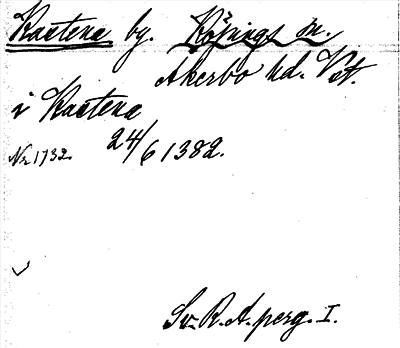 Kastena by. Köpings sn.
Åkerbo hd. Vstm.
i Kastena
Nr 1732. 24/6 1382.
Sv. R. A. perg. I.